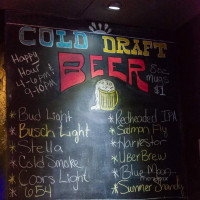 COLD DRAFT
BEER
Happy
Hour
4-6pm &
9-10pm
8oz
mugs
$1
*Bud Light
*Busch Light
*Stella
*Cold Smoke
*Coors Light
*654
*Redheaded IPA
*Salmon Fly
*Harvestor
*UberBrew
*Blue Moon
*Summer Shandy